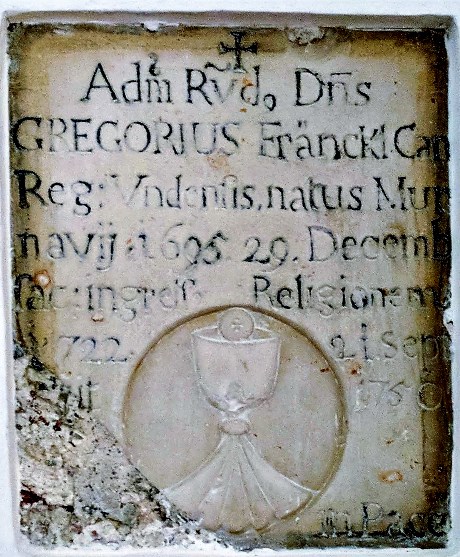 Adm̃ Rṽdo Dñs
GREGORIUS Fränckl Can
Reg: Vndensis, natus Mur
navij i695. 29. Decemb
sac: ingress Religionem
i722. 2i. Sept
in Pace